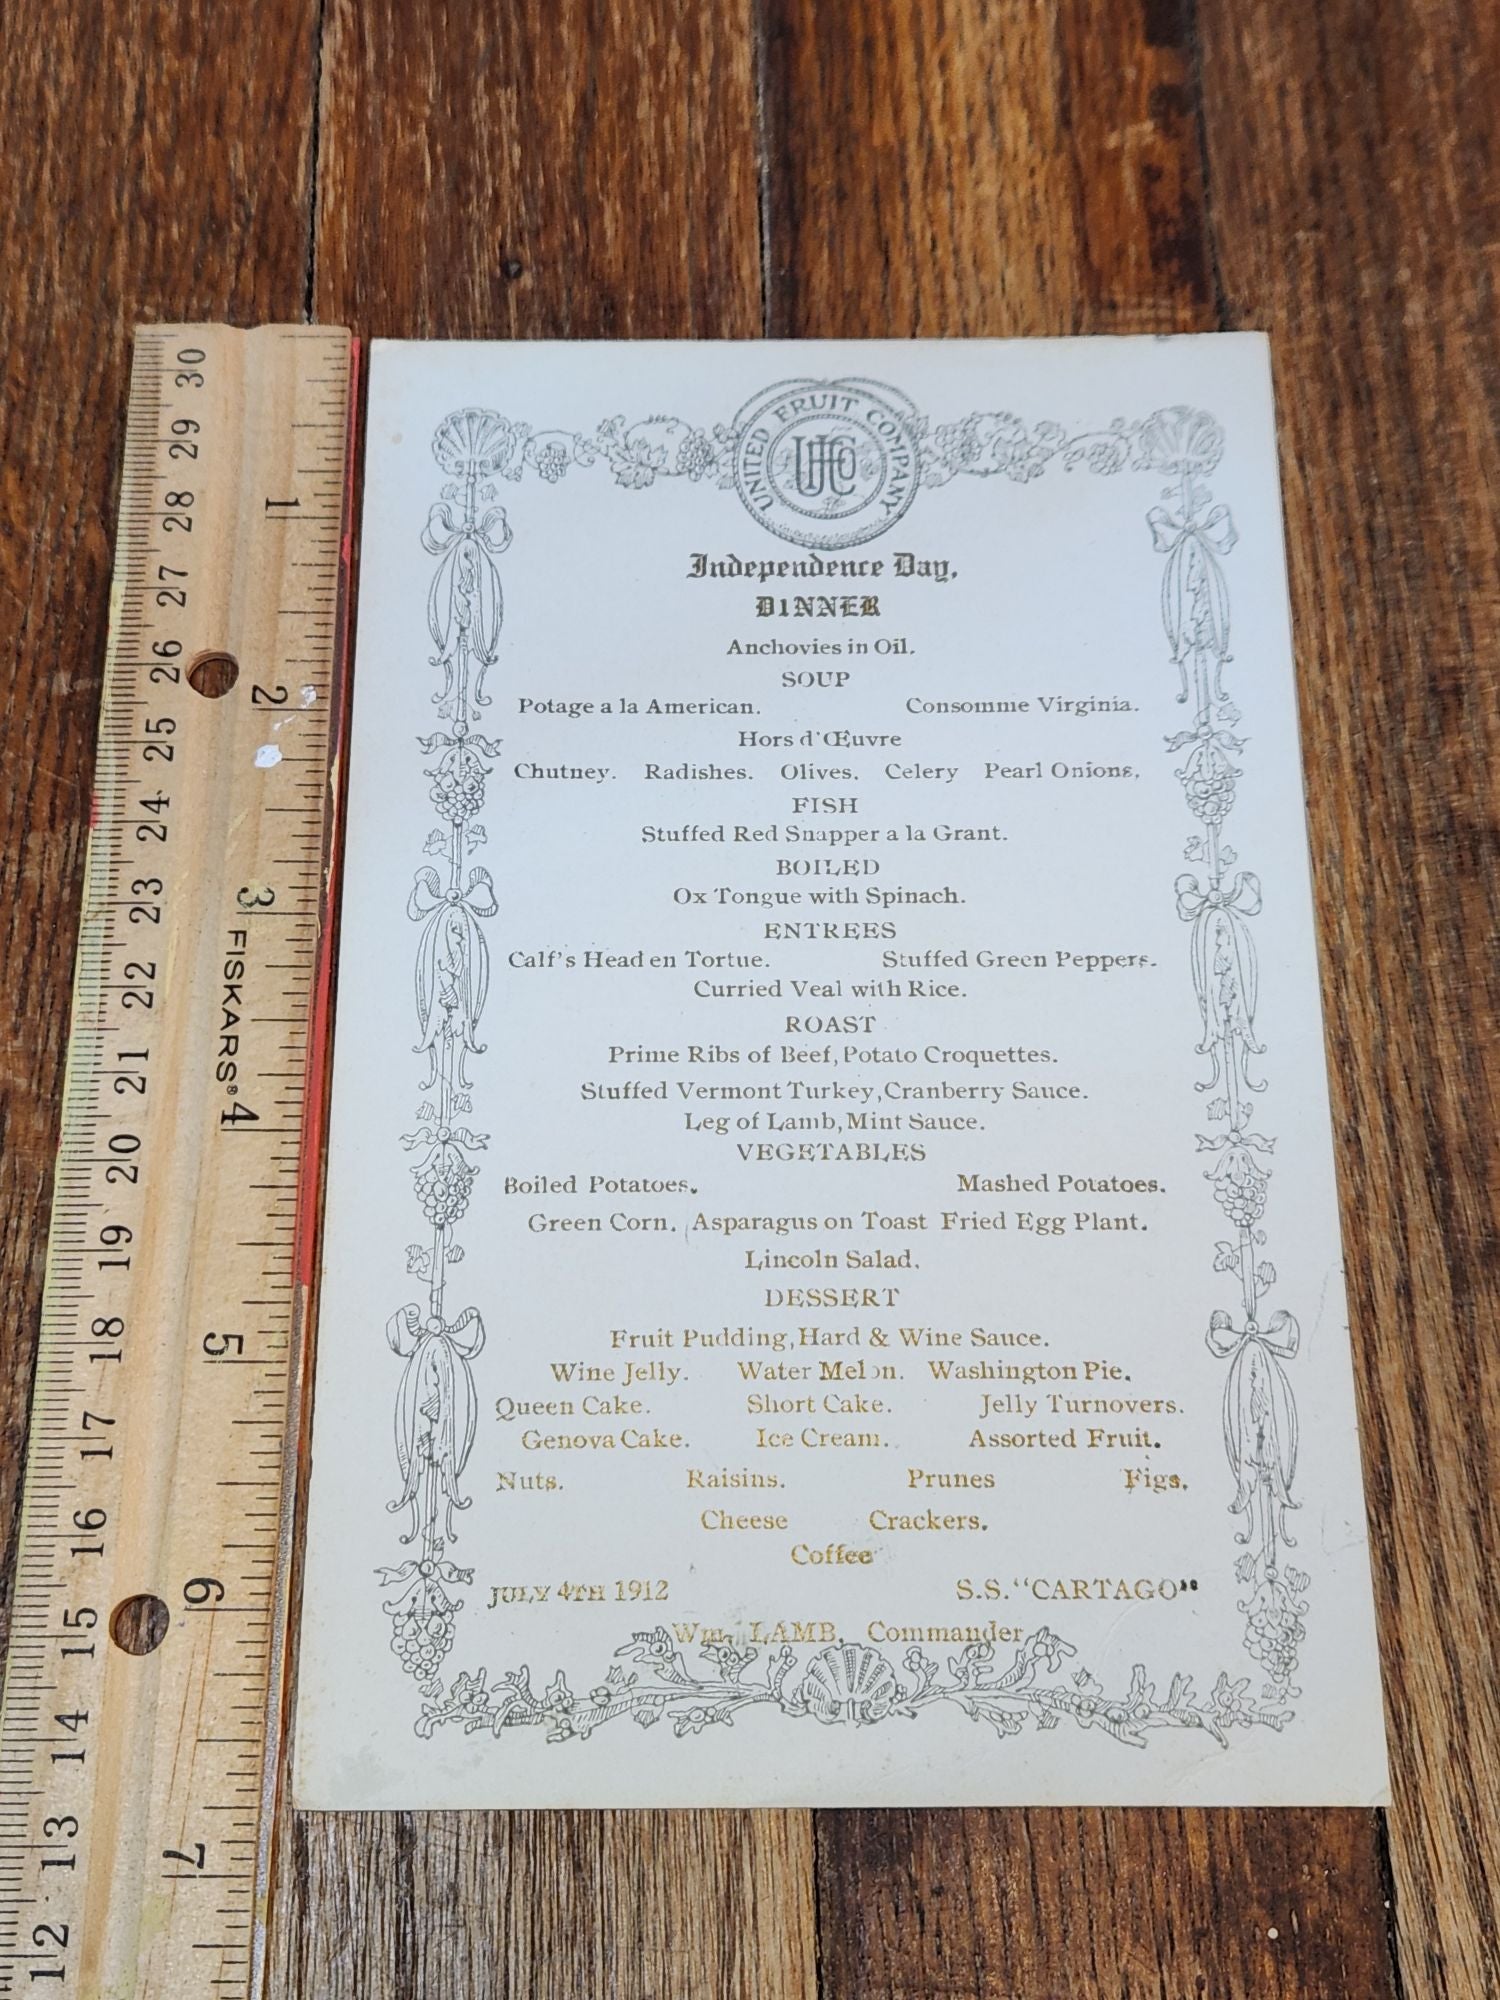 UNITED FRUIT COMPANY
UFCo
Independence Day,
D1NNER
Anchovies in Oil.
SOUP
Potage a la American. Consomme Virginia.
Hors d'Œuvre
Chutney. Radishes. Olives. Celery Pearl Onions.
FISH
Stuffed Red Snapper a la Grant.
BOILED
Ox Tongue with Spinach.
ENTREES
Calf's Head en Tortue. Stuffed Green Peppers.
Curried Veal with Rice.
ROAST
Prime Ribs of Beef, Potato Croquettes.
Stuffed Vermont Turkey, Cranberry Sauce.
Leg of Lamb, Mint Sauce.
VEGETABLES
Boiled Potatoes. Mashed Potatoes.
Green Corn. Asparagus on Toast Fried Egg Plant.
Lincoln Salad.
DESSERT
Fruit Pudding, Hard & Wine Sauce.
Wine Jelly. Water Melon. Washington Pie.
Queen Cake. Short Cake. Jelly Turnovers.
Genova Cake. Ice Cream. Assorted Fruit.
Nuts. Raisins. Prunes Figs.
Cheese Crackers.
Coffee
JULY 4TH 1912 S.S. "CARTAGO"
Wm. LAMB, Commander
30
29
28
27
26
25
24
23
22
21
20
19
18
17
16
15
14
13
12
1
2
3
FISKARS®
4
5
6
7